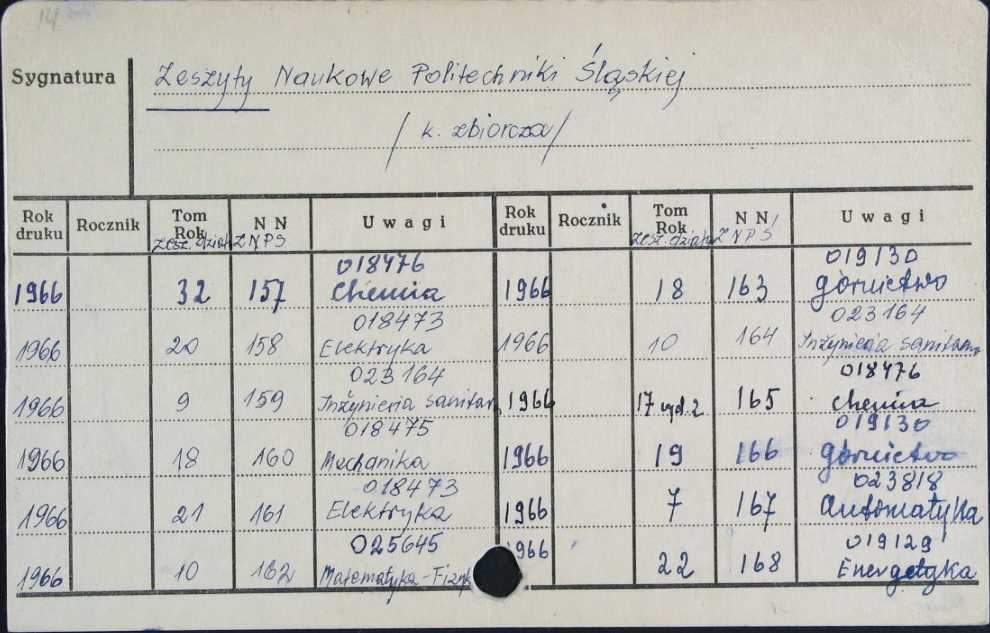 14
Sygnatura Zeszyty Naukowe Politechniki Śląskiej
/k. zbiorcza/
Rok druku Rocznik Tom Rok N N U w a g i Rok druku Rocznik Tom Rok N N U w a g i
zesz. dział. ZNPS zesz. dział. ZNPS
018476 019130
1966 32 157 Chemia 1966 18 163 górnictwo
018473 023164
1966 20 158 Elektryka 1966 10 164 Inżynieria sanitarna
023164 018476
1966 9 159 Inżynieria sanitarn 1966 17 wyd. 2 165 chemia
018475 019130
1966 18 160 Mechanika 1966 19 166 górnictwo
018473 023818
1966 21 161 Elektryka 1966 7 167 Automatyka
025645 019129
1966 10 162 Matematyka-Fizyk 1966 22 168 Energetyka